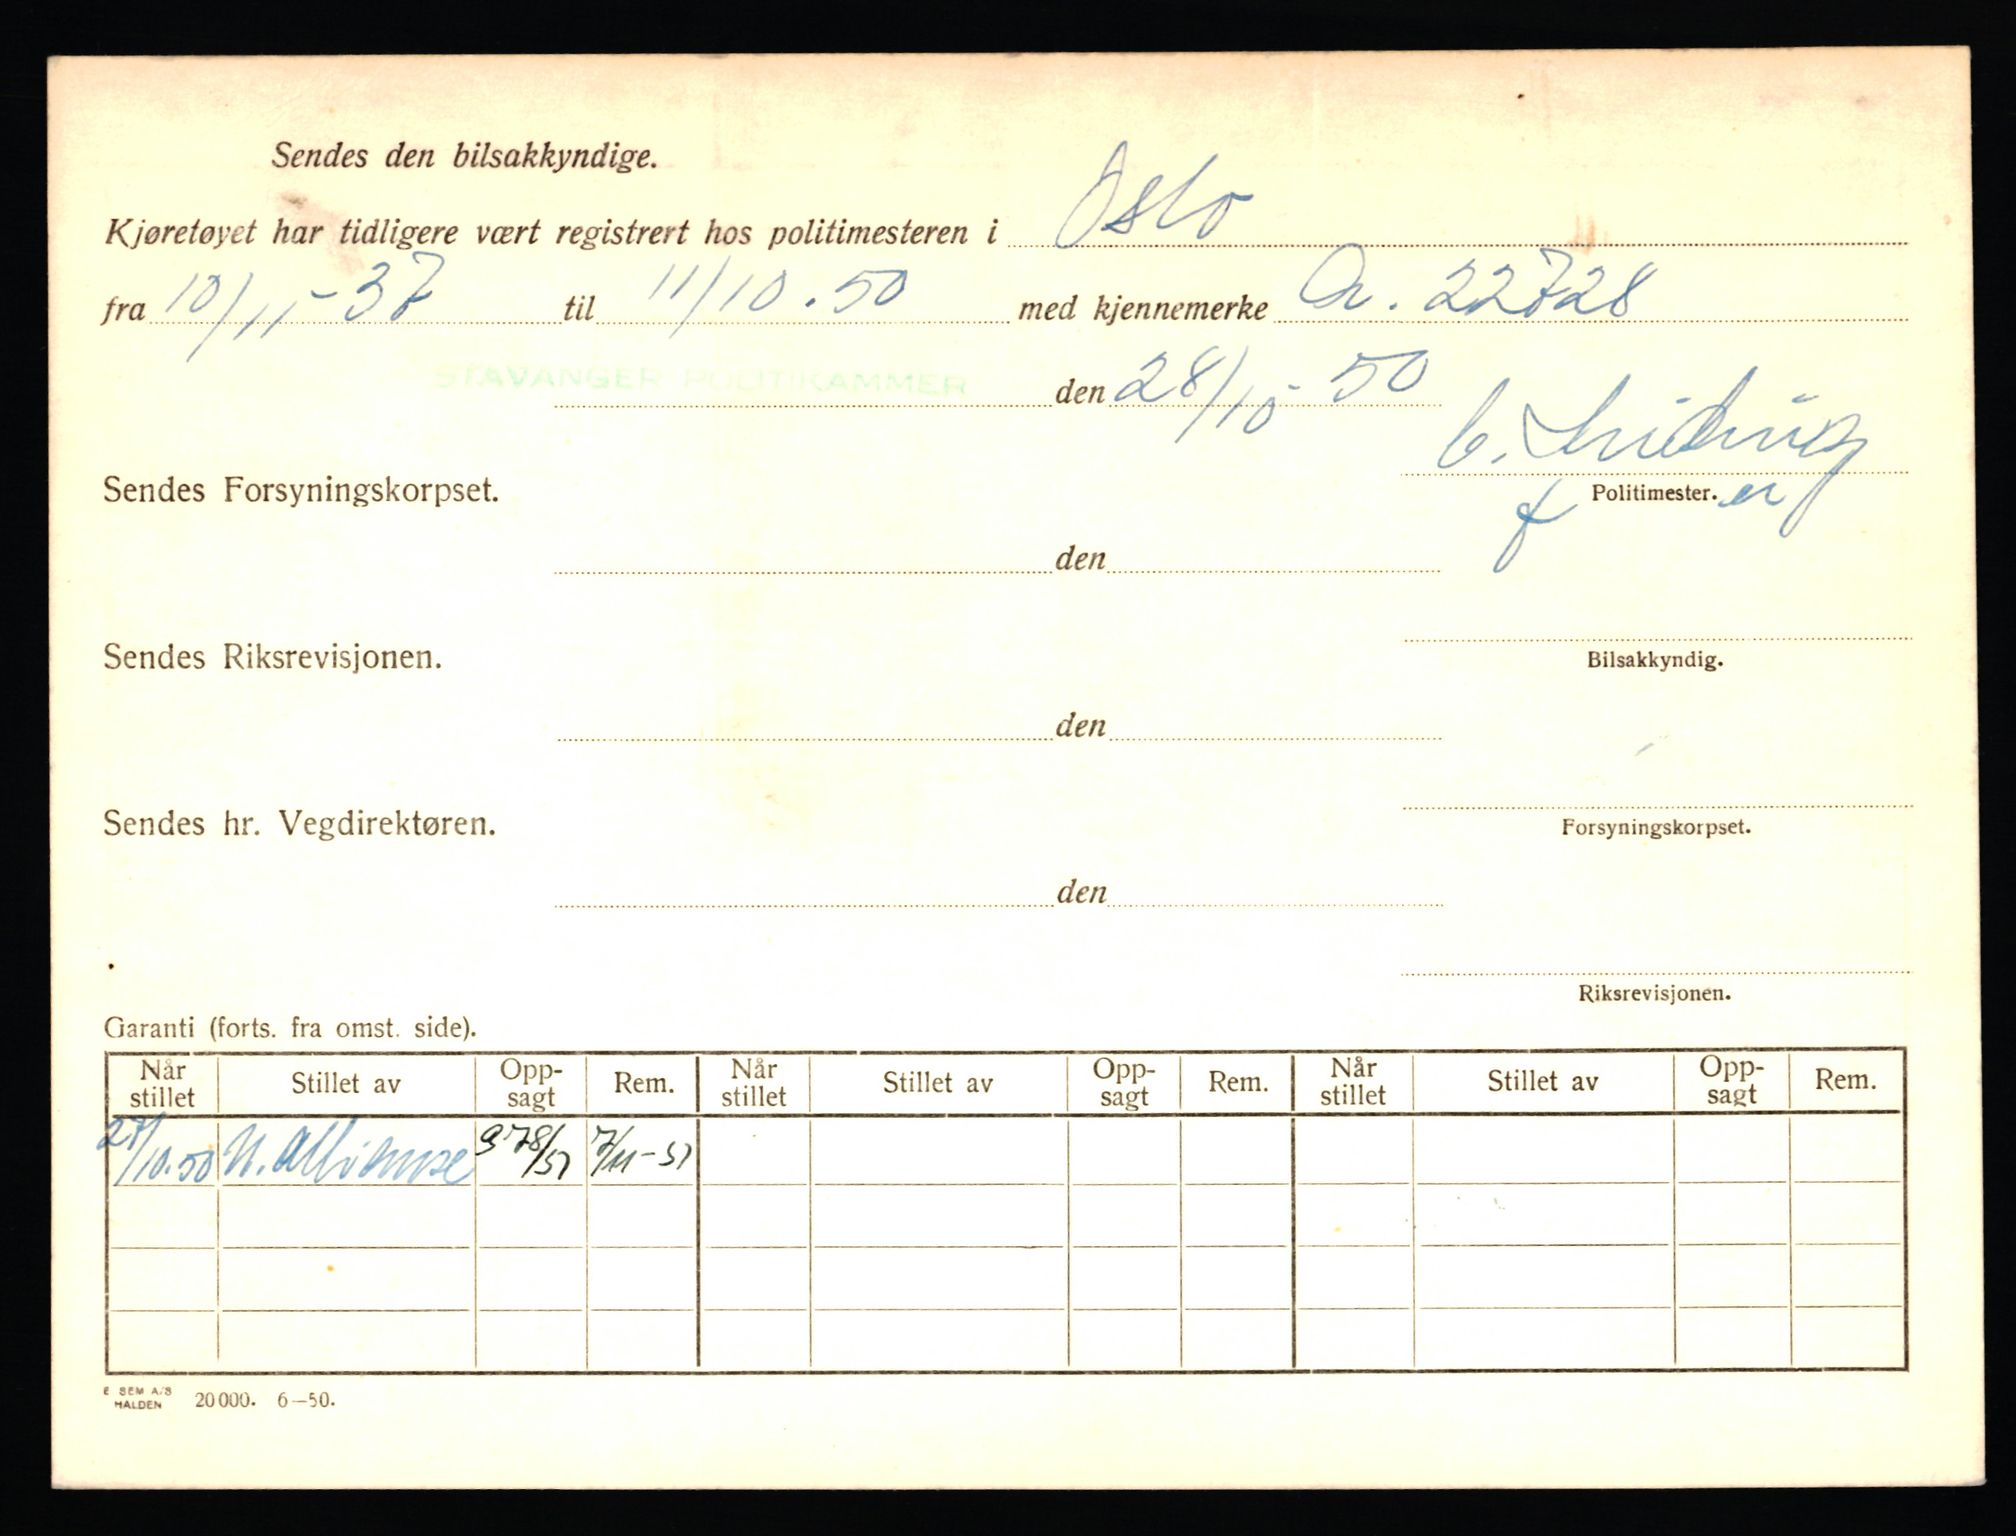 Sendes den bilsakkyndige.
Kjøretøyet har tidligere vært registrert hos politimesteren i Oslo
fra 10/11-37 til 11/10.50 med kjennemerke A. 22728
STAVANGER POLITIKAMMER den 28/10-50
Sendes Forsyningskorpset.
Politimester.
den
Sendes Riksrevisjonen.
Bilsakkyndig.
den
Sendes hr. Vegdirektøren.
Forsyningskorpset.
den
Riksrevisjonen.
Garanti (forts. fra omst. side).
Når stillet Stillet av Oppsagt Rem. Når stillet Stillet av Oppsagt Rem. Når stillet Stillet av Oppsagt Rem.
27/10.50 N. Allianse 978/51 7/11-51
E SEM A/S
HALDEN 20000. 6-50.